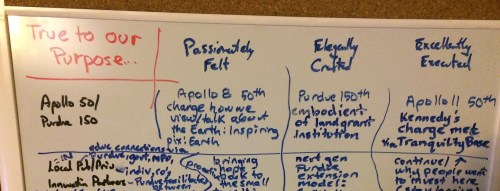 True to our
Purpose...
Passionately
Felt
Elegantly
Crafted
Excellently
Executed
Apollo 50/
Purdue 150
Apollo 8 50th
change how we
view/talk about
the Earth: Inspiring
pix: Earth
Purdue 150th
embodient
of land grant
Institution
Apollo 11 50th
Kennedy's
charge met
Tranquility Base
educ connections via
IN Purdue, govt, nfpo,
indiv, rs,
Local Pub/Priv
Innovation Partners
Purdue facilitates
between
bringing
hope
back to
the small
next gen
Purdue
extension
model:
continual
why people
want to
invest here